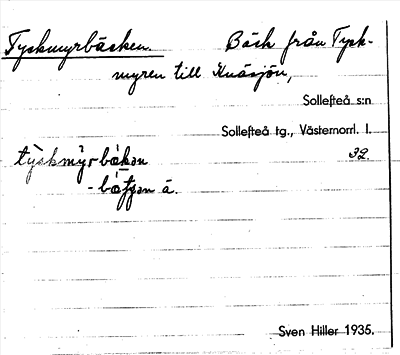 Tyskmyrbäcken. Bäck från Tysk-
myren till Knäsjön,
Sollefteå s:n
Sollefteå tg., Västernorrl. l.
týskmỳrbäkan 32.
- bäʃʃan ä.
Sven Hiller 1935.